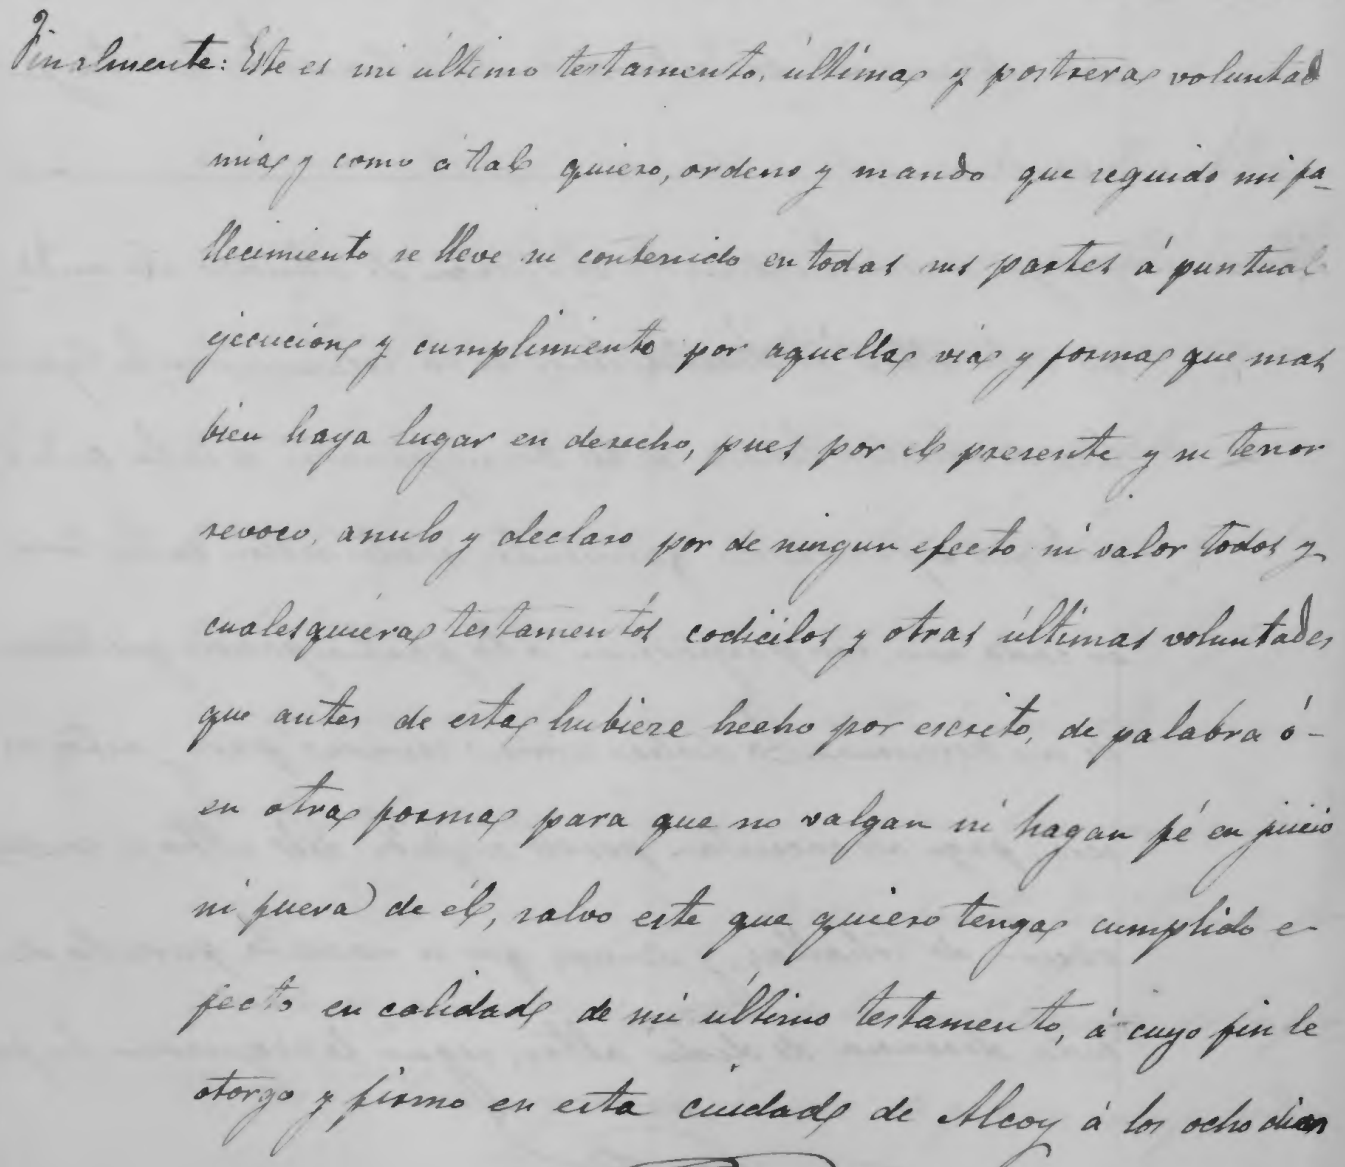 Finalmente: Este es mi último testamento, última y postrera voluntad
mia y como á tal quiero, ordeno y mando que seguido mi fa-
llecimiento se lleve su contenido en todas sus partes á puntual
ejecucion y cumplimiento por aquella via y forma que mas
bien haya lugar en derecho, pues por el presente y su tenor
revoco, anulo y declaro por de ningun efecto ni valor todos y
cualesquiera testamentos codicilos y otras últimas voluntades
que antes de esta hubiere hecho por escrito, de palabra ó-
en otra forma para que no valgan ni hagan fé en juicio
ni fuera de él, salvo este que quiero tenga cumplido e-
fecto en calidad de mi último testamento, á cuyo fin le
otorgo y firmo en esta ciudad de Alcoy á los ocho dias